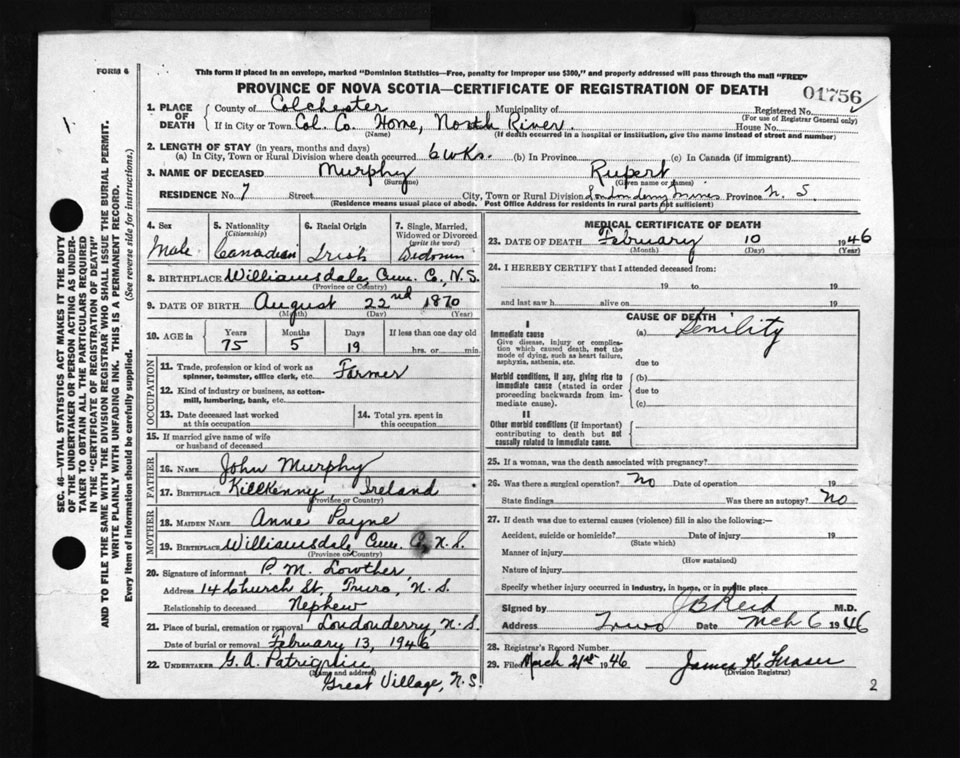 FORM 6
This form if placed in an envelope, marked "Dominion Statistics—Free, penalty for improper use $300," and properly addressed will pass through the mail "FREE"
PROVINCE OF NOVA SCOTIA—CERTIFICATE OF REGISTRATION OF DEATH
01756
1. PLACE OF DEATH
County of Colchester Municipality of Registered No.
(For use of Registrar General only)
If in City or Town Col. Co. Home, North River. House No.
(Name) (If death occurred in a hospital or institution, give the name instead of street and number)
2. LENGTH OF STAY (in years, months and days)
(a) In City, Town or Rural Division where death occurred 6 wks. (b) In Province (c) In Canada (if immigrant)
3. NAME OF DECEASED Murphy Rupert
(Surname) (Given name or names)
RESIDENCE No. 7 Street City, Town or Rural Division Londonderry Mines Province N. S.
(Residence means usual place of abode. Post Office Address for residents in rural parts not sufficient)
4. Sex
Male
5. Nationality
(Citizenship)
Canadian
6. Racial Origin
Irish
7. Single, Married, Widowed or Divorced
(write the word)
Widower
8. BIRTHPLACE Williamsdale, Cum. C., N.S.
(Province or Country)
9. DATE OF BIRTH August 22nd 1870
(Month) (Day) (Year)
10. AGE in
Years Months Days If less than one day old
75 5 19 hrs. or min.
OCCUPATION
11. Trade, profession or kind of work as
spinner, teamster, office clerk, etc. Farmer
12. Kind of industry or business, as cotton-
mill, lumbering, bank, etc.
13. Date deceased last worked
at this occupation
14. Total yrs. spent in
this occupation
15. If married give name of wife
or husband of deceased
FATHER
16. NAME John Murphy
17. BIRTHPLACE Killkenny, Ireland
(Province or Country)
MOTHER
18. MAIDEN NAME Anne Payne
19. BIRTHPLACE Williamsdale, Cum. C., N.S.
(Province or Country)
20. Signature of informant P. M. Lowther
Address 14 Church St., Truro, N. S.
Relationship to deceased Nephew
21. Place of burial, cremation or removal Londonderry, N.S.
Date of burial or removal February 13, 1946
22. UNDERTAKER G. A.
(Name and address)
Great Village, N.S.
MEDICAL CERTIFICATE OF DEATH
23. DATE OF DEATH February 10 1946
(Month) (Day) (Year)
24. I HEREBY CERTIFY that I attended deceased from:
19 to 19
and last saw h alive on 19
CAUSE OF DEATH
I
Immediate cause (a) Senility
Give disease, injury or complica-
tion which caused death, not the
mode of dying, such as heart failure,
asphyxia, asthenia, etc. due to
Morbid conditions, if any, giving rise to
immediate cause (stated in order
proceeding backwards from im-
mediate cause).
(b)
due to
(c)
II
Other morbid conditions (if important)
contributing to death but not
causally related to immediate cause.
25. If a woman, was the death associated with pregnancy?
26. Was there a surgical operation? No Date of operation 19
State findings Was there an autopsy? No
27. If death was due to external causes (violence) fill in also the following:—
Accident, suicide or homicide? Date of injury 19
(State which)
Manner of injury
(How sustained)
Nature of injury
Specify whether injury occurred in industry, in home, or in public place
Signed by J B Reid M.D.
Address Truro Date Mch 6 1946
28. Registrar's Record Number
29. Filed March 21st 1946 James K Fraser
(Division Registrar)
2
1.
SEC. 46—VITAL STATISTICS ACT MAKES IT THE DUTY
OF THE UNDERTAKER OR PERSON ACTING AS UNDER-
TAKER TO OBTAIN ALL THE PARTICULARS REQUIRED
IN THE "CERTIFICATE OF REGISTRATION OF DEATH"
AND TO FILE THE SAME WITH THE DIVISION REGISTRAR WHO SHALL ISSUE THE BURIAL PERMIT.
WRITE PLAINLY WITH UNFADING INK. THIS IS A PERMANENT RECORD.
Every item of information should be carefully supplied. (See reverse side for instructions.)